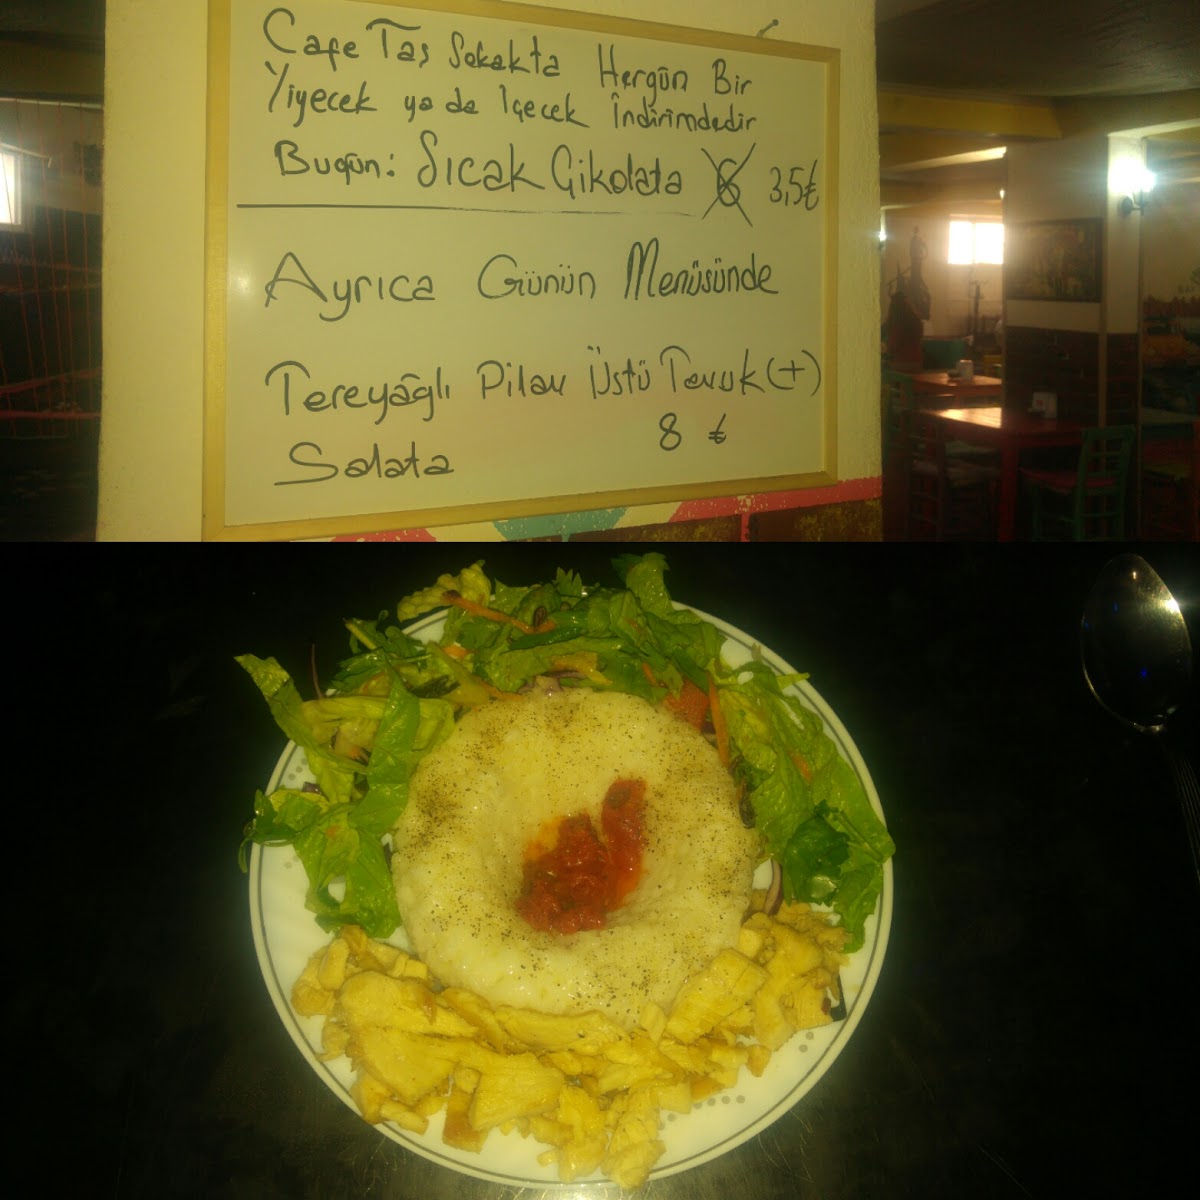 Cafe Taş Sokakta Hergün Bir
Yiyecek ya da İçecek İndirimdedir
Bugün: Sıcak Çikolata 6 3,5₺
Ayrıca Günün Menüsünde
Tereyağlı Pilav Üstü Tavuk (+)
Salata 8 ₺